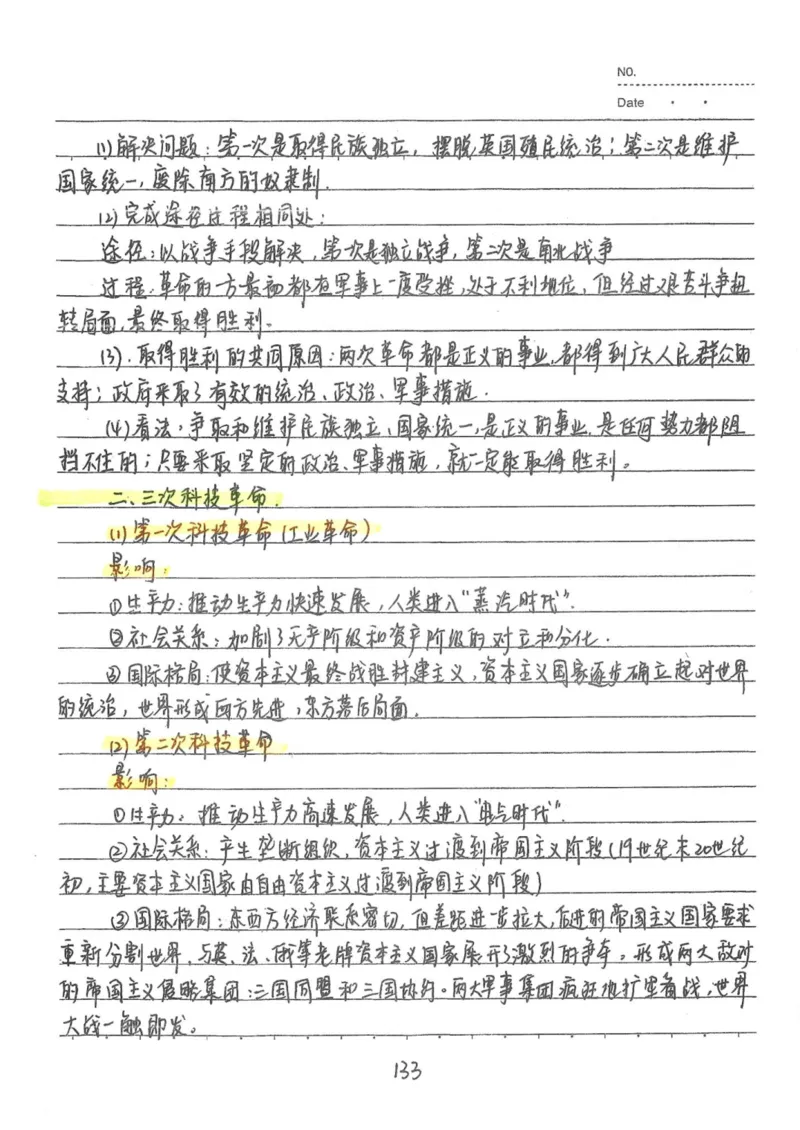 NO.
Date
(1)解决问题：第一次是取得民族独立，摆脱英国殖民统治；第二次是维护
国家统一，废除南方的奴隶制．
(2)完成途径过程相同处：
途径：以战争手段解决，第一次是独立战争，第二次是南北战争
过程：革命的一方最初都在军事上一度受挫，处于不利地位，但经过艰苦斗争扭
转局面，最终取得胜利。
(3)．取得胜利的共同原因：两次革命都是正义的事业，都得到广大人民群众的
支持；政府采取了有效的统治、政治、军事措施．
(4)看法：争取和维护民族独立、国家统一，是正义的事业，是任何势力都阻
挡不住的；只要采取坚定的政治、军事措施，就一定能取得胜利。
二、三次科技革命．
(1)第一次科技革命(工业革命)
影响：
①生产力：推动生产力快速发展，人类进入“蒸汽时代”．
②社会关系：加剧了无产阶级和资产阶级的对立和分化．
③国际格局：使资本主义最终战胜封建主义，资本主义国家逐步确立起对世界
的统治，世界形成西方先进，东方落后局面．
(2)第二次科技革命
影响：
①生产力：推动生产力高速发展，人类进入“电气时代”．
②社会关系：产生垄断组织，资本主义过渡到帝国主义阶段(19世纪末20世纪
初，主要资本主义国家由自由资本主义过渡到帝国主义阶段)
③国际格局：东西方经济联系密切，但差距进一步拉大，后进的帝国主义国家要求
重新分割世界，与英、法、俄等老牌资本主义国家展开了激烈的争夺。形成两大敌对
的帝国主义侵略集团：三国同盟和三国协约。两大军事集团疯狂地扩军备战，世界
大战一触即发。
133